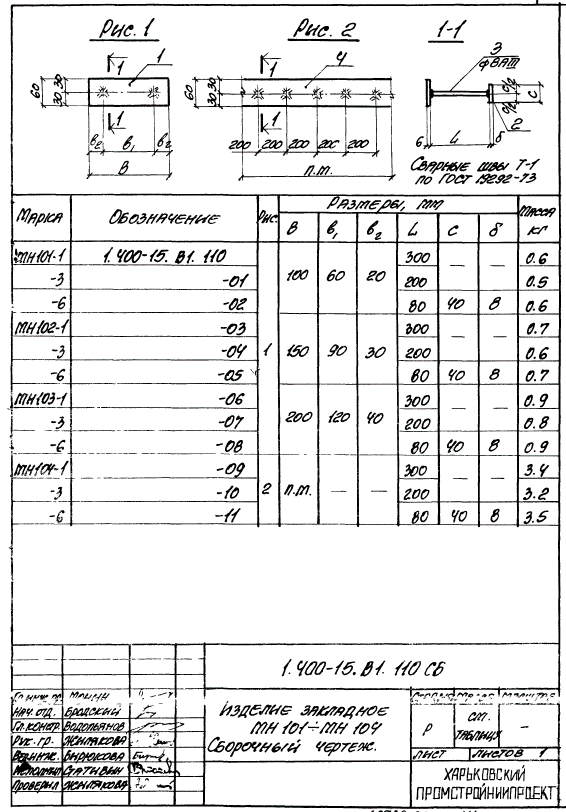 Рис. 1 Рис. 2 1-1
1 1 4 1 3
ф8АIII
60 30 30 60 30 30 с/2 с/2 с
1 1 2
в2 в1 в2 200 200 200 200 200 6 L δ
В п.м. Сварные швы Т-1
по ГОСТ 19292-73
Марка Обозначение Рис. Размеры, мм Масса кг
В в1 в2 L с δ
МН101-1 1.400-15.В1.110 1 100 60 20 300 — — 0.6
-3 -01 200 0.5
-6 -02 80 40 8 0.6
МН102-1 -03 150 90 30 300 — — 0.7
-3 -04 200 0.6
-6 -05 80 40 8 0.7
МН103-1 -06 200 120 40 300 — — 0.9
-3 -07 200 0.8
-6 -08 80 40 8 0.9
МН104-1 -09 2 п.м. — — 300 — — 3.4
-3 -10 200 3.2
-6 -11 80 40 8 3.5
1.400-15.В1.110 СБ
Нач. отд. Бродский
Гл. констр. Водопьянов
Рук. гр. Жмлакова
Вед. инж. Бирюкова
Исполнил Статывин
Проверил Жмлакова
Изделие закладное
МН 101÷МН 104
Сборочный чертеж.
Р см. таблицу —
Лист Листов 1
ХАРЬКОВСКИЙ
ПРОМСТРОЙНИИПРОЕКТ